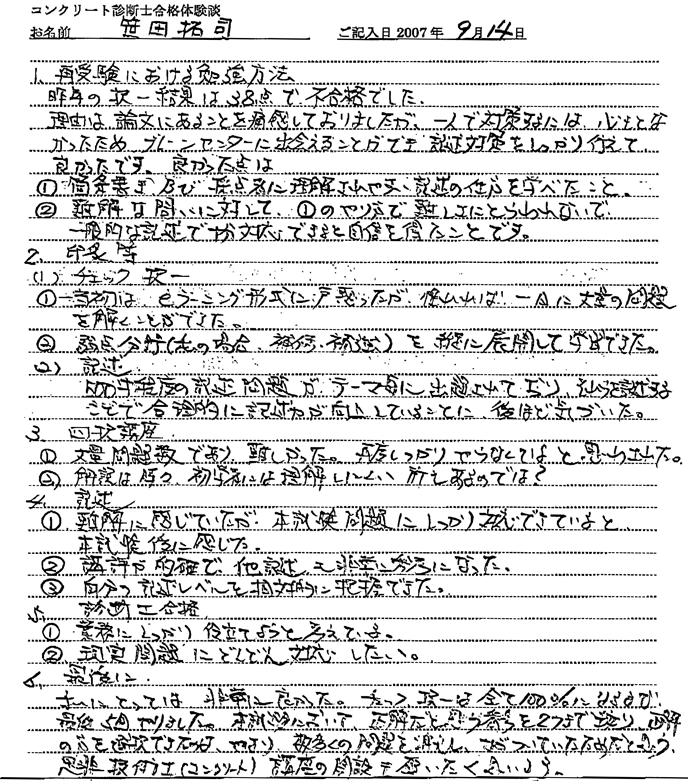 コンクリート診断士合格体験談
お名前 笹田拓司 ご記入日 2007年 9月14日
1. 再受験における勉強方法
昨年の択一結果は38点で不合格でした。
理由は、論文にあることを痛感しておりましたが、一人で対策するには、心もとな
かったため ブレーンセンターに出会えることができ 記述対策をしっかり行えて
良かったです。良かった点は
① 箇条書き及び採点者に理解されやすい記述の仕方を学べたこと。
② 難解な問いに対して、①のやり方で難しさにとらわれないで、
一般的な記述で十分対応できると自信を得たことです。
2.
(1) チェック 択一
① 当初は、eラーニング形式に戸惑ったが 慣れれば 一日に大量の問題
を解くことができた。
② 弱点分野(私の場合、補修、補強)を に展開して学習できた。
(2) 記述
100字程度の記述問題が、テーマ毎に出題されており、
ことで合理的に記述力が向上していることに 後ほど気づいた。
3. 四択講座
① 大量問題数であり、難しかった。 しっかりやらなくてはと思わされた。
② 解説は 初学者には理解しにくい所もあるのでは?
4. 記述
① 難解に感じていたが 本試験問題にしっかり対応できていると
本試験後に感じた。
② 講評が的確で、他記述も非常に参考になった。
③ 自分の記述レベルを相対的に把握できた。
5. 診断士合格
① 業務にしっかり役立てようと考えている。
② 現実問題にどんどん対応したい。
6. 最後に
私にとっては非常に良かった。チェック択一は全て100%になるまで
最後 やりました。本試験において 正解だと思う番号を2つまで絞り、正解
の方を選択できたのは、やはり 数多くの問題を消化し、 いたためだと思う。
是非 技術士(コンクリート)講座の開設も願いたく思います。